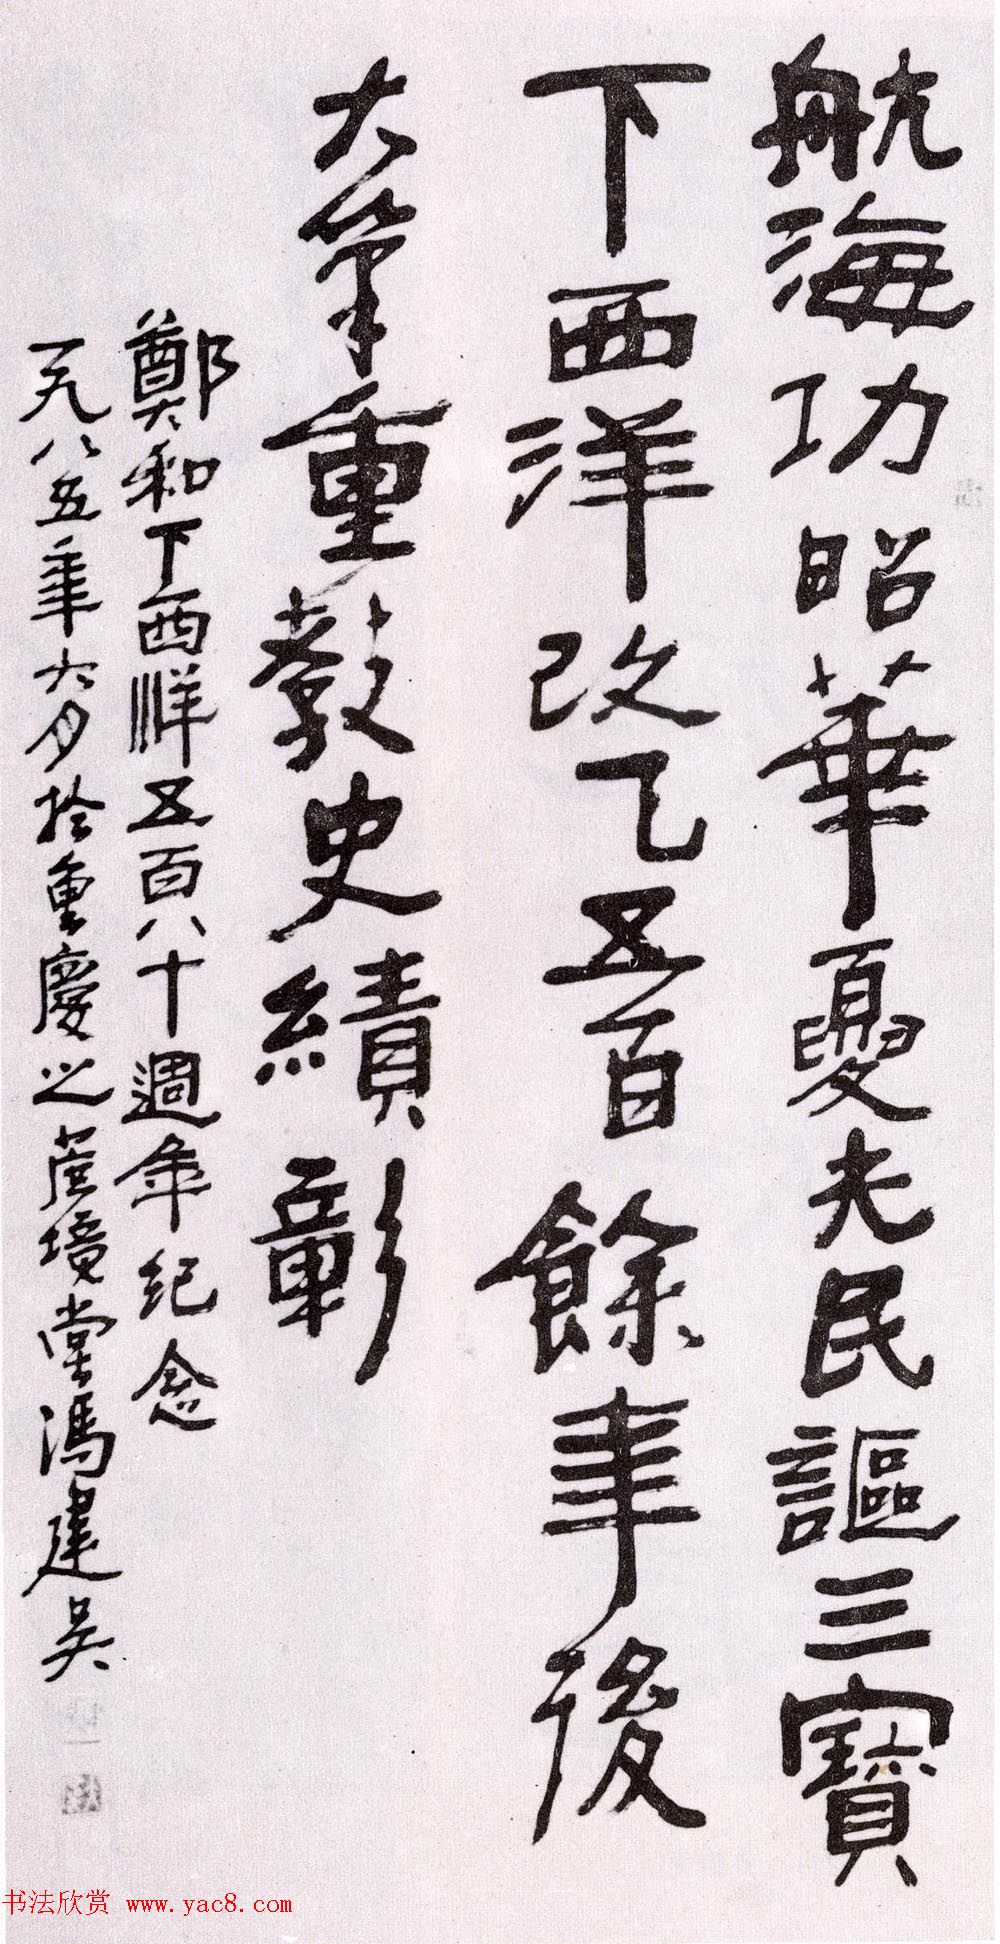 航海功昭華夏先民謳三寶
下西洋改乙五百餘年後
大筆重敎史績彰
鄭和下西洋五百八十週年紀念
一九八五年六月於重慶之蔗境堂馮建吳
书法欣赏 www.yac8.com